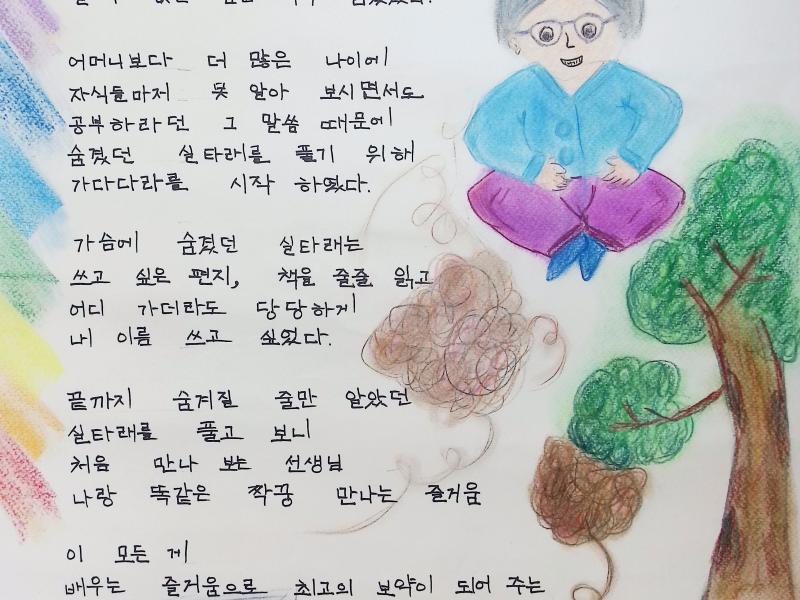 어머니보다 더 많은 나이에
자식들마저 못 알아 보시면서도
공부하라던 그 말씀 때문에
숨겼던 실타래를 풀기 위해
가다다라를 시작 하였다.
가슴에 숨겼던 실타래는
쓰고 싶은 편지, 책을 줄줄 읽고
어디 가더라도 당당하게
내 이름 쓰고 싶었다.
끝까지 숨겨질 줄만 알았던
실타래를 풀고 보니
처음 만나 보는 선생님
나랑 똑같은 짝꿍 만나는 즐거움
이 모든 게
배우는 즐거움으로 최고의 보약이 되어 주는